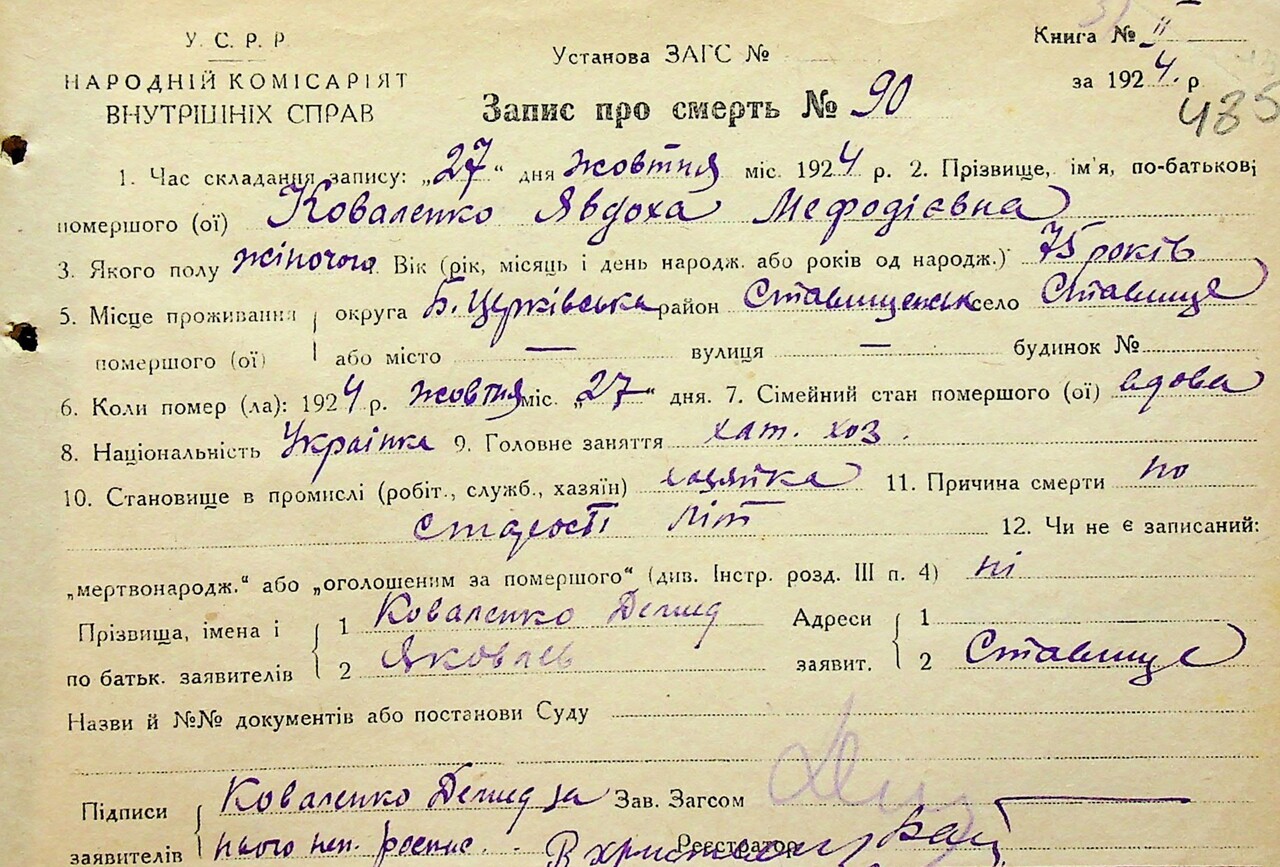 У. С. Р. Р
НАРОДНІЙ КОМІСАРІЯТ
ВНУТРІШНІХ СПРАВ
Установа ЗАГС №
Книга № II
за 1924. р
485
Запис про смерть № 90
1. Час складання запису: „27“ дня жовтня міс. 1924 р. 2. Прізвище, ім'я, по-батькові
помершого (ої) Коваленко Явдоха Мефодієвна
3. Якого полу жіночого Вік (рік, місяць і день народж. або років од народж.) 75 років
5. Місце проживання округа Б. Церківська район Ставищенськ село Ставище
помершого (ої) або місто — вулиця — будинок №
6. Коли помер (ла): 1924 р. жовтня міс. „27“ дня. 7. Сімейний стан помершого (ої) вдова
8. Національність Українка 9. Головне заняття хат. хоз.
10. Становище в промислі (робіт., служб., хазяїн) хазяйка 11. Причина смерти по
старості літ 12. Чи не є записаний:
„мертвонародж.“ або „оголошеним за помершого“ (див. Інстр. розд. III п. 4) ні
Прізвища, імена і 1 Коваленко Демид Адреси 1
по батьк. заявителів 2 Яковлев заявит. 2 Ставище
Назви й №№ документів або постанови Суду
Підписи Коваленко Демид за Зав. Загсом
заявителів нього неп. роспис. Реєстратор